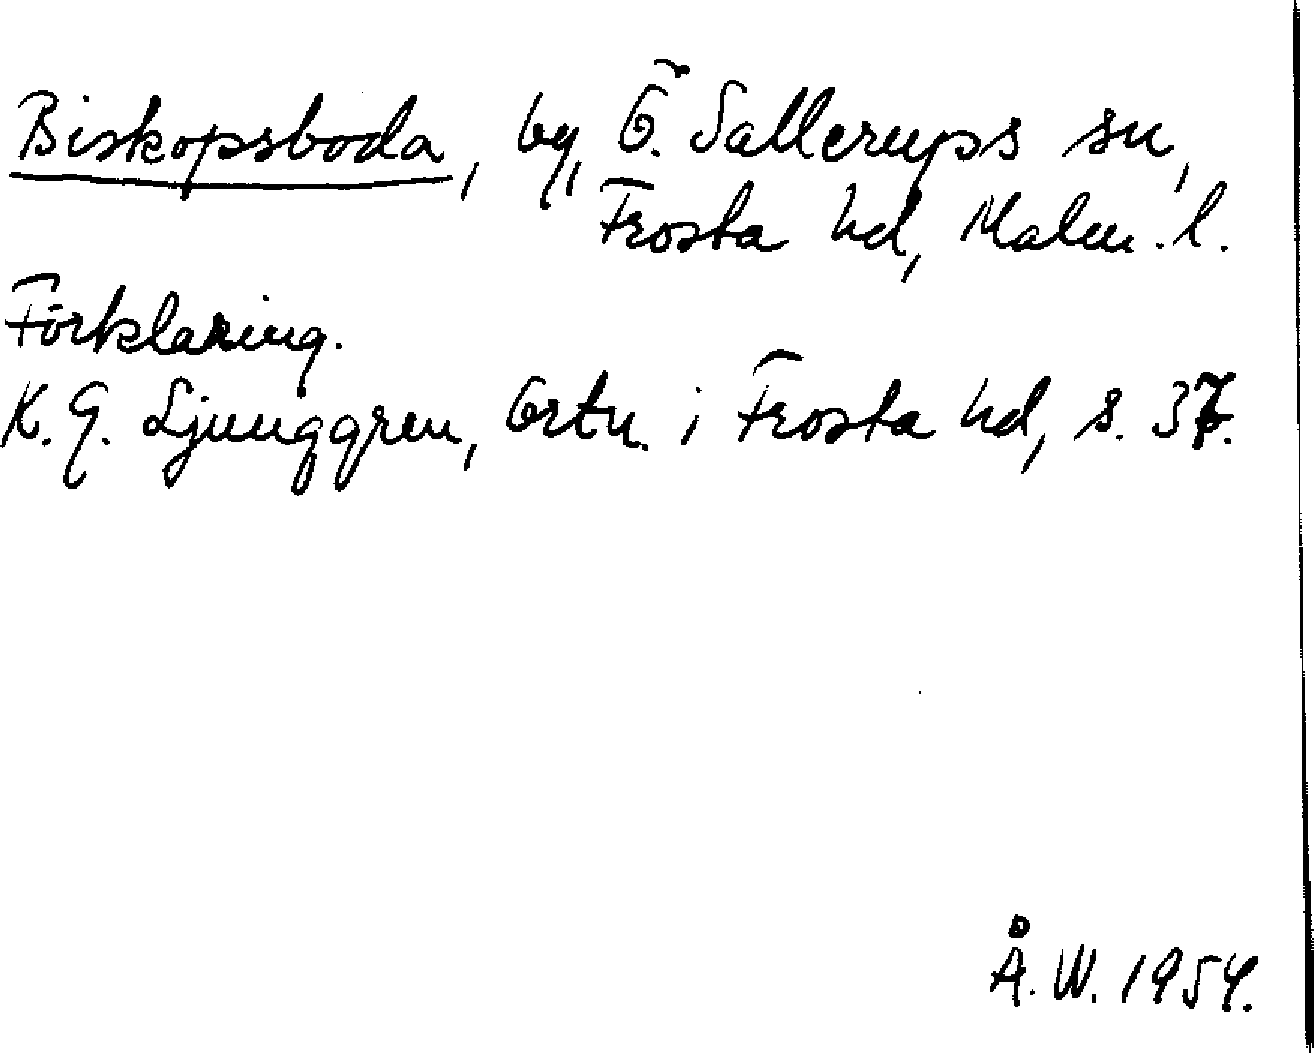 Biskopsboda, by, Ö. Sallerups sn,
Frosta hd, Malm. l.
Förklaring.
K. G. Ljunggren, Ortn. i Frosta hd, s. 37.
Å. W. 1954.